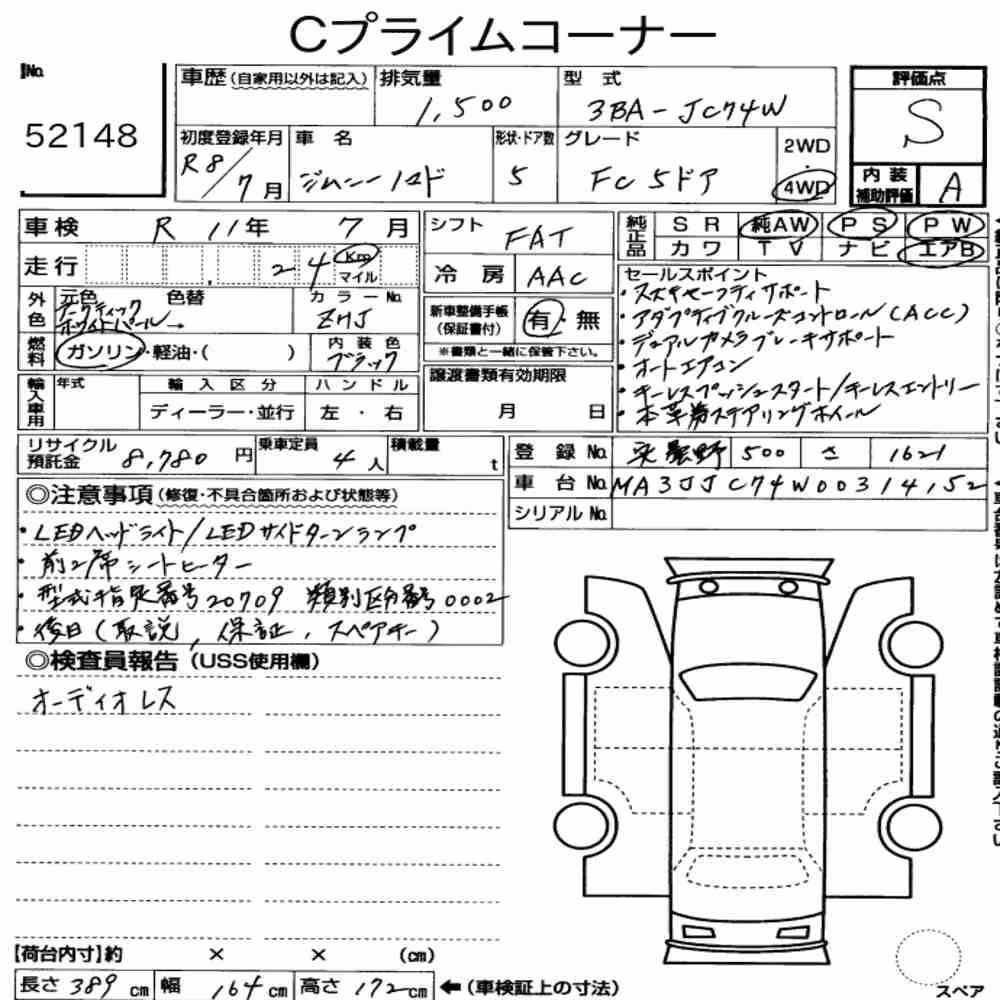 Cプライムコーナー
No.
52148
車歴 (自家用以外は記入)
排気量
1,500
型 式
3BA-JC74W
評価点
S
初度登録年月
R8/7月
車 名
ジムニーノマド
形状・ドア数
5
グレード
FC 5ドア
2WD
・
4WD
内 装
補助評価
A
車検 R 11年 7月
走行 24 Km マイル
外色
元色 色替
アークティックホワイトパール→
カラーNo.
ZHJ
燃料
ガソリン・軽油・( )
内 装 色
ブラック
輸入車用
年式
輸 入 区 分
ディーラー・並行
ハ ン ド ル
左 ・ 右
シフト
FAT
冷 房
AAC
新車整備手帳
(保証書付)
有・無
※書類と一緒に保管下さい。
譲渡書類有効期限
月 日
純正品
S R
純AW
P S
P W
カ ワ
T V
ナ ビ
エアB
セールスポイント
・スズキセーフティサポート
・アダプティブクルーズコントロール(ACC)
・デュアルカメラブレーキサポート
・オートエアコン
・キーレスプッシュスタート/キーレスエントリー
・本革巻ステアリングホイール
リサイクル
預託金
8,780 円
乗車定員
4人
積載量
t
登 録 No.
500
さ
1621
車 台 No.
MA3JJC74W00314152
シリアル No.
◎注意事項 (修復・不具合箇所および状態等)
・LEDヘッドライト/LEDサイドターンランプ
・前2席シートヒーター
・型式指定番号20709 類別区分番号0002
・後日(取説, 保証, スペアキー)
◎検査員報告 (USS使用欄)
オーディオレス
【荷台内寸】約 × × (cm)
長さ 389 cm
幅 164 cm
高さ 172 cm
←(車検証上の寸法)
スペア